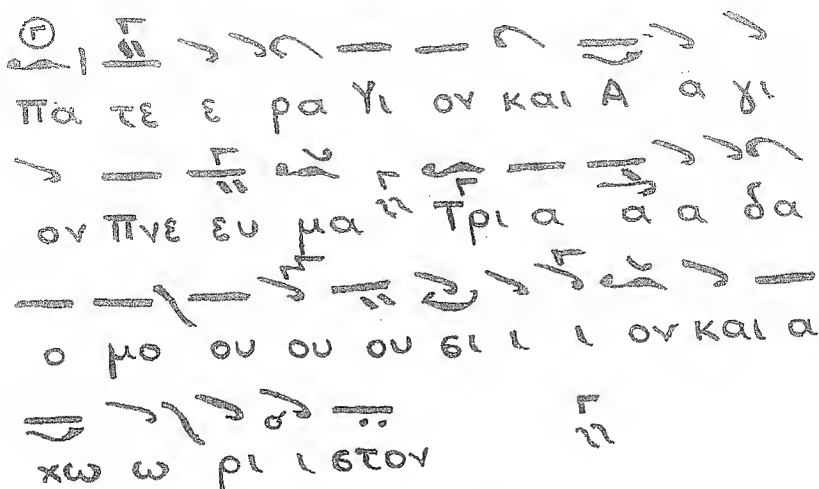 πα τε ε ρα Υι ον και Α α γι
ον Πνε ευ μα Τρι α α α δα
ο μο ου ου ου σι ι ι ον και α
χω ω ρι ι στον